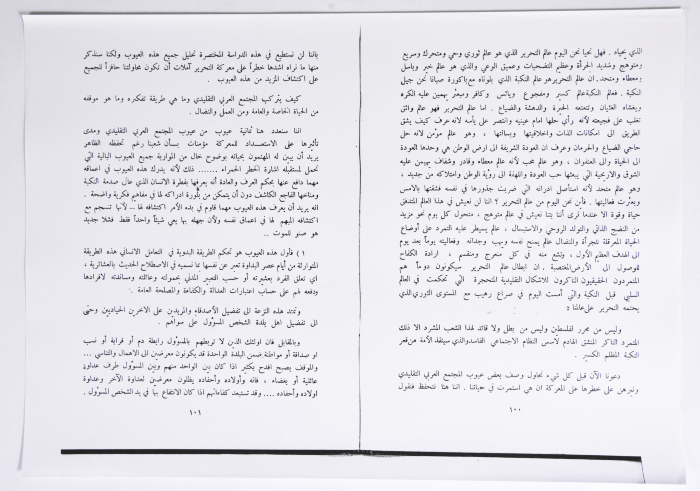 الذي نحياه . فهل نحيا نحن اليوم عالم التحرير الذي هو عالم ثوري وحي ومتحرك وسريع
ومتوهج وشديد الحرأة وعظيم التضحيات وعميق الوعي والذي هو عالم خير وباسل
ومعطاء ومتحد . ان عالم التحرير هو عالم النكبة الذي بلونا باكورة صبانا نحن جيل
النكبة . فعالم النكبة عالم كسير ومفجوع ويائس وكافر ومبعثر يهمين عليه الكره
ويغشاه الغثيان وتتعته الحيرة والدهشة والضياع . اما عالم التحرير فهو عالم واثق
تغلب على فجيعته لأنه رأى حلها امام عينيه وانتصر على يأسه لأنه عرف كيف يشق
الطريق الى امكانات الذات واخلاقيتها وبسالتها ، وهو عالم مؤمن لانه حل
حاجي الضياع والحرمان وعرف ان العودة الشريفة الى ارض الوطن هي وحدها العودة
الى الحياة والى العنفوان ، وهو عالم محب لأنه عالم معطاء وقادر وشفاف يهيمن عليه
الشوق والاريحية التي يبعثها حب العودة واللهفة الى رؤية الوطن وامتلاكه من جديد ،
وهو عالم متحد لأنه استأصل ادرانه التي ضربت جذورها في نفسه فشقتها بالامس
وبعثرت فعاليتها . فأين نحن من عالم التحرير ؟ اننا لن نعيش في هذا العالم المتدفق
حياة وقوة الا عندما نرى أننا بتنا نعيش في عالم متوهج ، متحول كل يوم نحو مزيد
من النضج الذاتي والتولد الروحي والاستبسال ، عالم يسيطر عليه التمرد على أوضاع
الحياة المعرقلة للجرأة والنضال عالم يمنح نفسه ويهب وجدانه وفعاليته يوماً بعد يوم
الى الهدف العظيم الأول ، وتشع منه في كل منعرج ومنقسم ، ارادة الكفاح
للوصول الى الأرض المغتصبة . ان ابطال عالم التحرير سيكونون دوماً هم
المتمردون الحقيقيون الناكرون للاشكال التقليدية المتحجرة التي تحكمت في العالم
السلبي قبل النكبة والتي أمست اليوم في صراع رهيب مع المستوى الثوري الذي
يحتمه التحرير على عالمنا :
وليس من محرر لفلسطين وليس من بطل ولا قائد لهذا الشعب المشرد الا ذلك
المتمرد الناكر المنشق الهادم لأسس النظام الاجتماعي الفاسد والذي سينقذ الأمة من قعر
النكبة المظلم الكسير .
دعونا الآن قبل كل شيء نحاول وصف بعض عيوب المجتمع العربي التقليدي
ونبرهن على خطرها على المعركة ان هي استمرت في حياتنا . اننا هنا نتحفظ فنقول
١٠٠
باننا لن نستطيع في هذه الدراسة المختصرة تحليل جميع هذه العيوب ولكنا سنذكر
منها ما نراه اشدها خطراً على معركة التحرير آملات أن تكون محاولتنا حافزاً للجميع
على اكتشاف المزيد من هذه العيوب .
كيف يُعرّكب المجتمع العربي التقليدي وما هي طريقة تفكره وما هو موقفه
من الحياة الخاصة والعامة ومن العمل والنضال .
اننا سنعدد هنا ثمانية عيوب من عيوب المجتمع العربي التقليدي ومدى
تأثيرها على الاستعداد للمعركة مؤمنات بأن شعبنا رغم تحفظه الظاهر
يريد أن يبين له المهتمون بحياته بوضوح خال من المواربة جميع العيوب البالية التي
تحمل لمستقبله اشارة الخطر الحمراء ....... ذلك لأنه يدرك هذه العيوب في اعماقه
مهما دافع عنها بحكم العرف والعادة أنه يعرفها بفطرة الانسان الذي عانى صدمة النكبة
ومناخها الفاجع الكاشف دون أن يتمكن من بلورة ادراكه لها في مفاهيم فكرية واضحة .
انه يريد أن يعرف هذه العيوب مهما قاوم في بدء الأمر اكتشافه لها – لأنها تنسجم مع
اكتشافه المبهم لها في اعماق نفسه ولأن جهله بها يعني شيئاً واحداً فقط فشلا جديد
هو صنو للموت ..
١ ) فأول هذه العيوب هو تحكم الطريقة البدوية في التعامل الانساني هذه الطريقة
المتوارثة من أيام عصر البداوة تعبر عن نفسها بما نسميه في الاصطلاح الحديث بالعشائرية ،
اي تعلق الفرد بعشيرته أو حسب التعبير المدني بحمولته وعائلته ومساندته لافرادها
ودفعه لهم على حساب اعتبارات العدالة والكفاءة والمصلحة العامة .
وتمتد هذه النزعة الى تفضيل الأصدقاء والمريدين على الآخرين الحياديين وحتى
الى تفضيل اهل بلدة الشخص المسؤول على سواهم .
وبالمقابل فان اولئك الذين لا تربطهم بالمسؤول رابطة دم أو قرابة أو نسب
او صداقة أو مواطنة ضمن البلدة الواحدة قد يكونون معرضين الى الاهمال والتناسي ...
والموقف يصبح افدح بكثير اذا كان بين الواحد منهم وبين المسؤول طرف عداوة
عائلية أو بغضاء ، فانه وأولاده وأحفاده يظلون معرضين لعداوة الآخر وعداوة
اولاده وأحفاده .... وقد تستبعد كفاءاتهم اذا كان الانتفاع بها في يد الشخص المسؤول .
١٠١